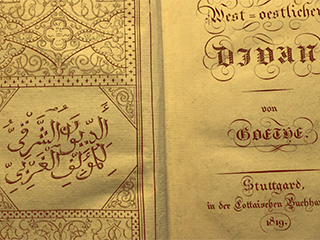 الديوان الشرقي
للمؤلف الغربي
West-oestlicher
DIVAN
von
GOETHE.
Stuttgard,
in der Cottaischen Buchhan
1819.